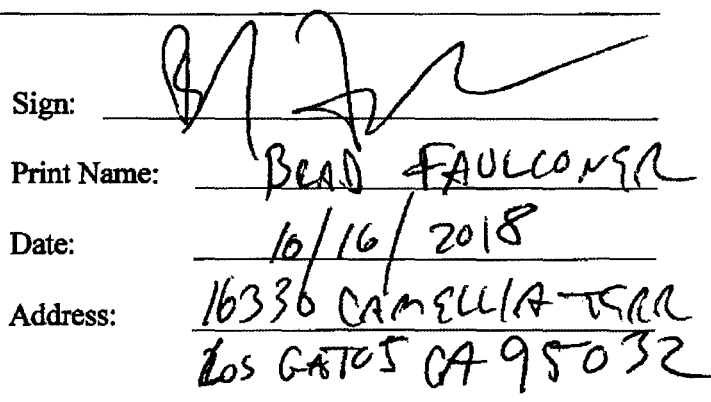 Sign:
Print Name: BRAD FAULCONER
Date: 10/16/2018
Address: 16330 CAMELLIA TERR
LOS GATOS CA 95032